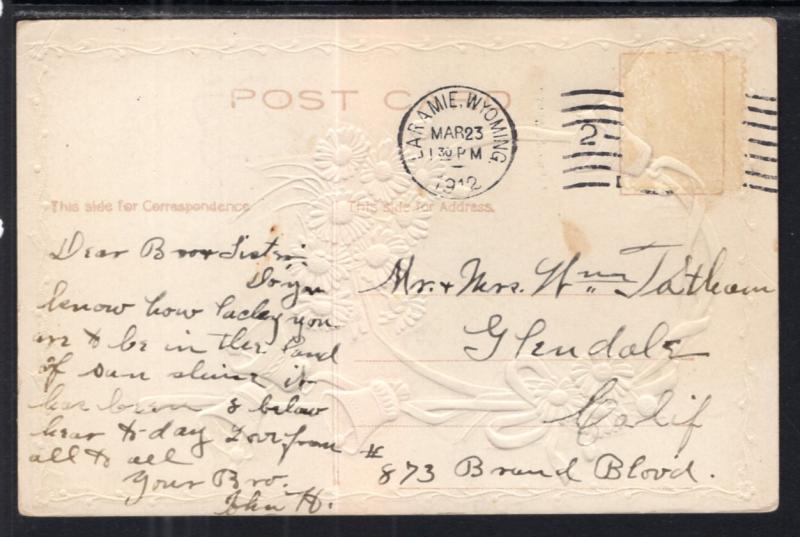 POST CARD
LARAMIE, WYOMING
MAR 23
1 30 PM
1912
2
This side for Correspondence
This side for Address.
Dear Bro + Sister,
Do you
know how lucky you
are to be in the land
of sun shine it
has been 8 below
hear to-day Love from
all to all
Your Bro.
John H.
Mr. + Mrs. Wm Tatham
Glendale
Calif
# 873 Brand Blovd.